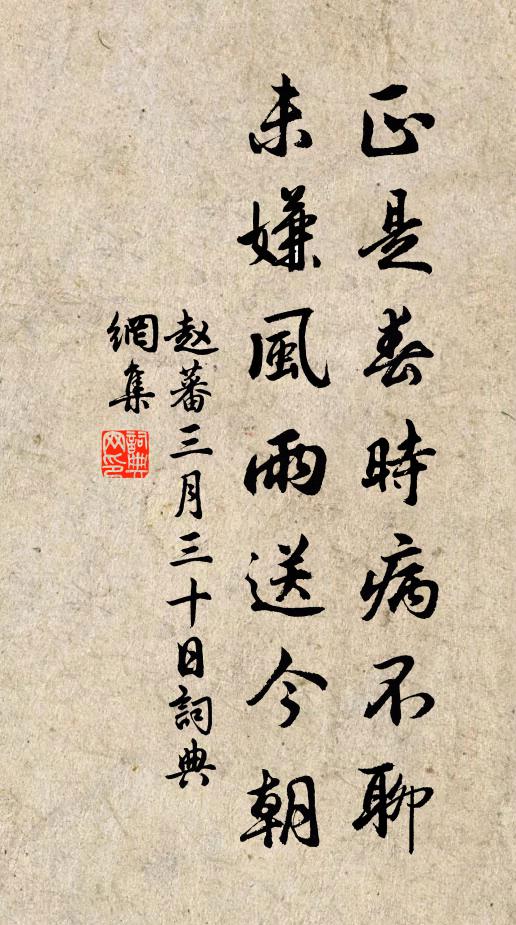 正是春時病不聊
未嫌風雨送今朝
赵蕃三月三十日詞典
網集
詞典网印